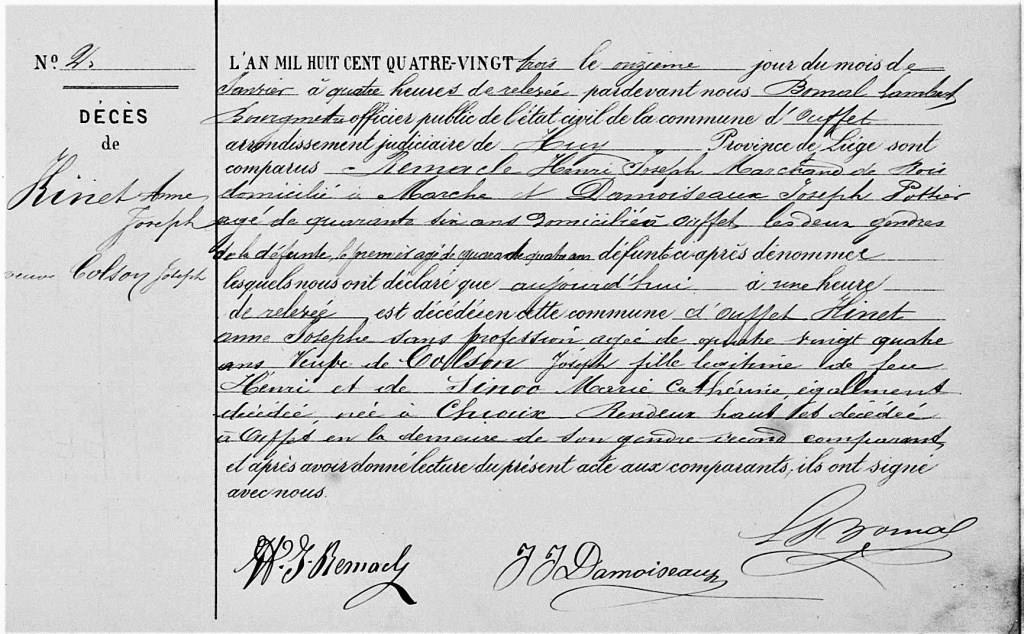 Nº 2.
DÉCÈS
de
Kinet Anne
Joseph
veuve Colson Joseph
L'AN MIL HUIT CENT QUATRE-VINGT trois le onzieme jour du mois de
Janvier à quatre heures de relevée pardevant nous Bomal Lambert
Bourgmetre officier public de l'état civil de la commune d'Ouffet
arrondissement judiciaire de Huy Province de Liége sont
comparus Remacle Henri Joseph Marchand de Bois
domicilié à Marche et Damoiseaux Joseph Pottier
agé de quarante six ans domicilié à Ouffet les deux gendres
de la défunte, le premier agé de quarante quatre ans défunt ci-après dénommé
lesquels nous ont déclaré que aujourd'hui à une heure
de relevée est décédée en cette commune d'Ouffet Kinet
anne Josephe sans profession agée de quatre vingt quatre
ans Veuve de Collson Joseph fille legitime de feu
Henri et de Marie Cathérine également
décédée née à Rendeux haut et décédée
à Ouffet en la demeure de son gendre second comparant,
et après avoir donné lecture du présent acte aux comparants, ils ont signé
avec nous.
L G Bomal
H. J. Remacle
J J Damoiseaux